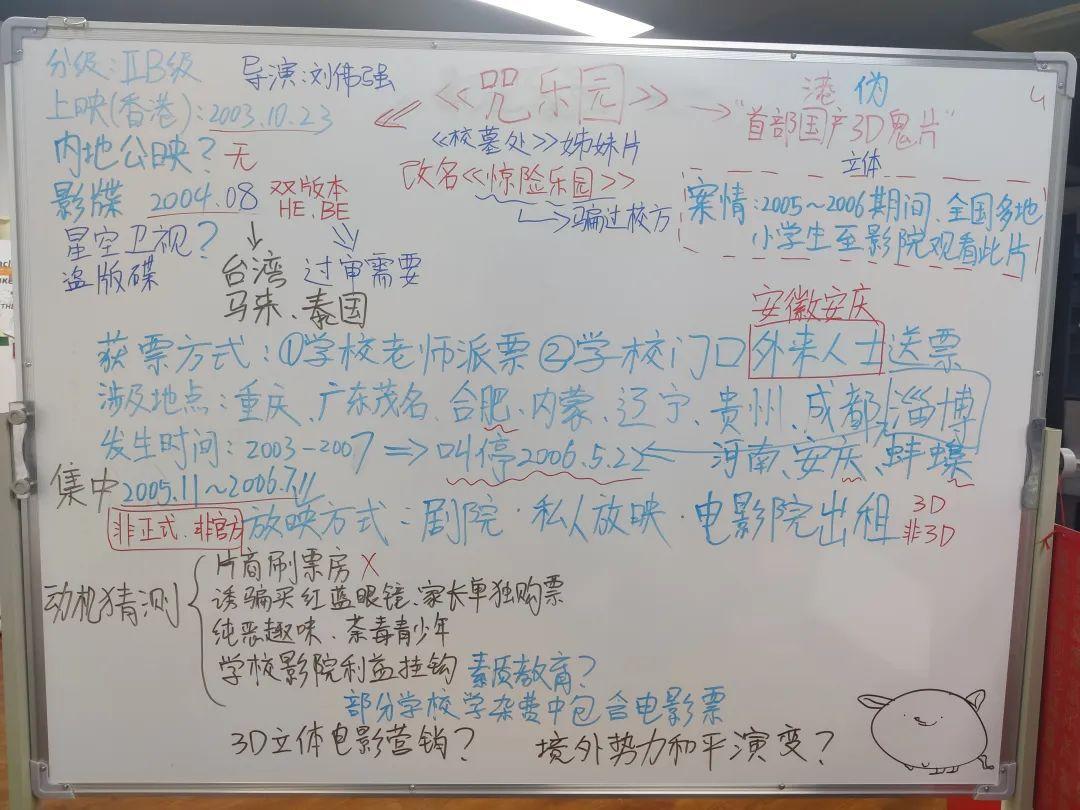 分级:ⅡB级
导演:刘伟强
上映(香港):2003.10.23
内地公映?无
影牒 2004.08
双版本
HE、BE
星空卫视?
盗版碟
台湾
马来、泰国
过审需要
《咒乐园》
《校墓处》姊妹片
改名《惊险乐园》
骗过校方
港 伪
"首部国产3D鬼片"
立体
案情:2005~2006期间、全国多地
小学生至影院观看此片
安徽安庆
获票方式:①学校老师派票②学校门口外来人士送票
涉及地点:重庆、广东茂名、合肥、内蒙、辽宁、贵州、成都、淄博
发生时间:2003-2007⇒叫停2006.5.22
河南、安庆、蚌蠓
集中2005.11~2006.7.11
非正式、非官方
放映方式:剧院·私人放映·电影院出租
3D
非3D
动机猜测
片商刷票房X
诱骗买红蓝眼镜、家长单独购票
纯恶趣味、荼毒青少年
学校影院利益挂钩 素质教育?
部分学校学杂费中包含电影票
3D立体电影营销?
境外势力和平演变?